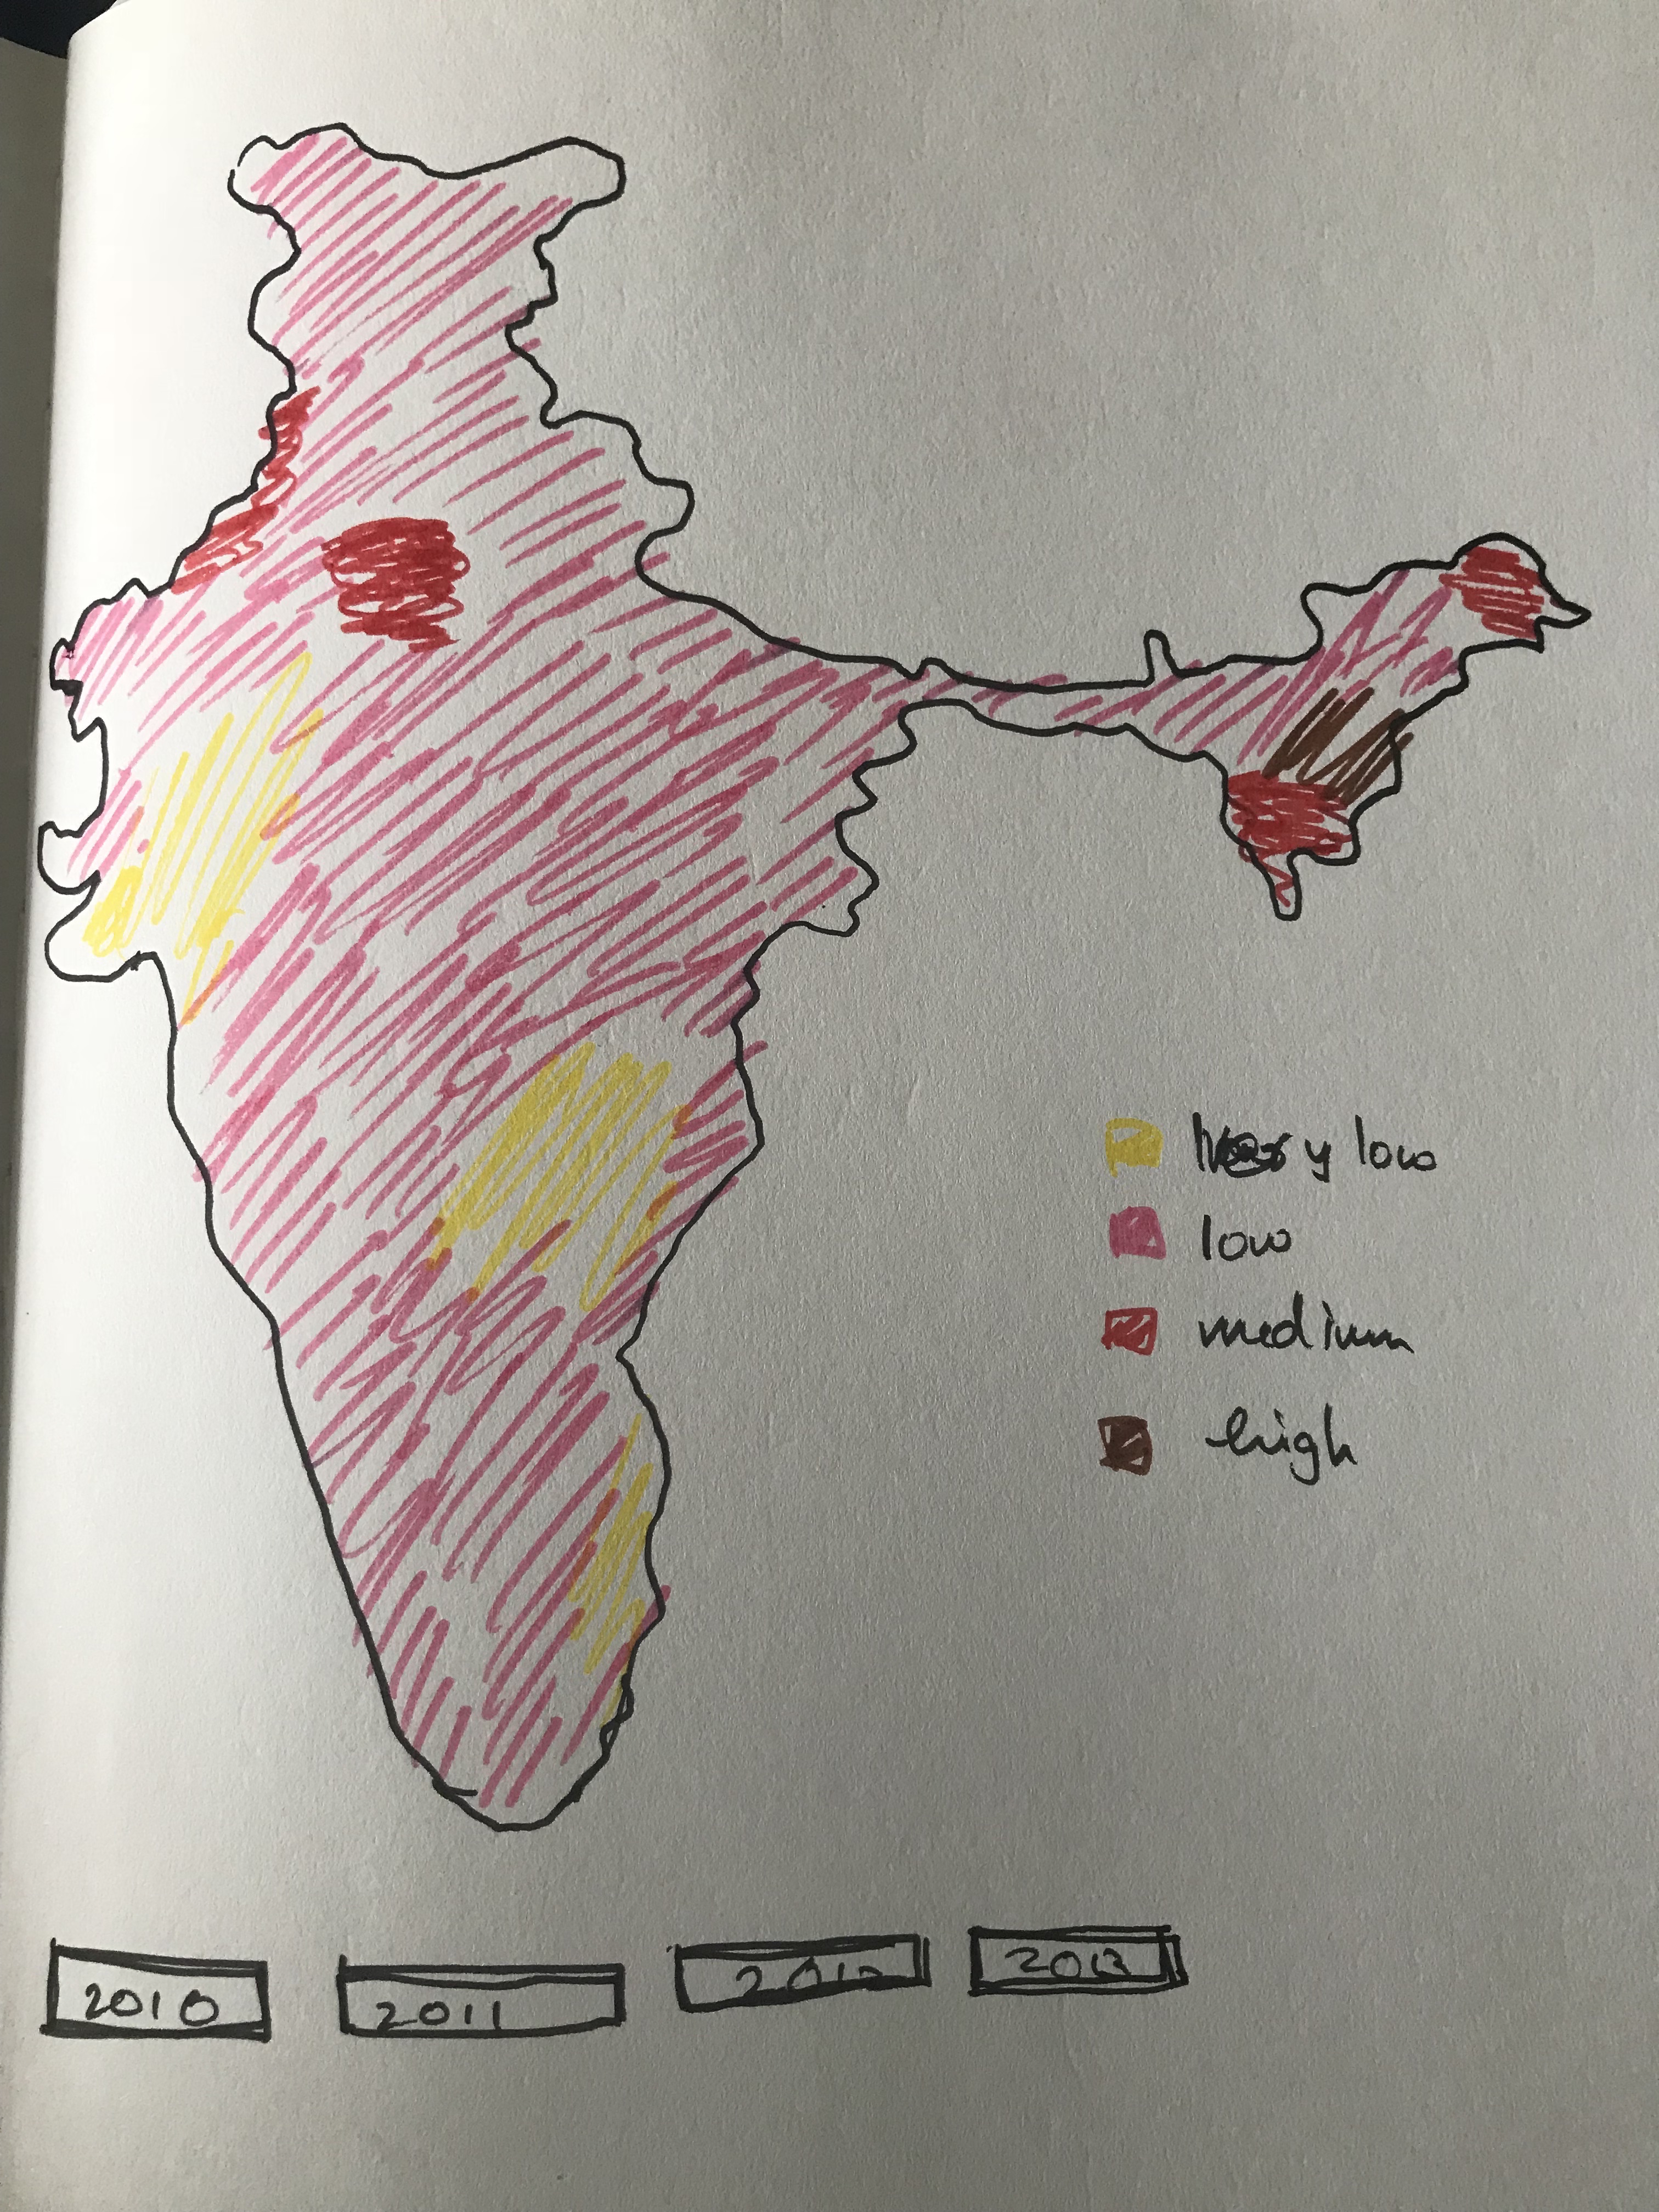 very low
low
medium
high
2010 2011 2012 2013